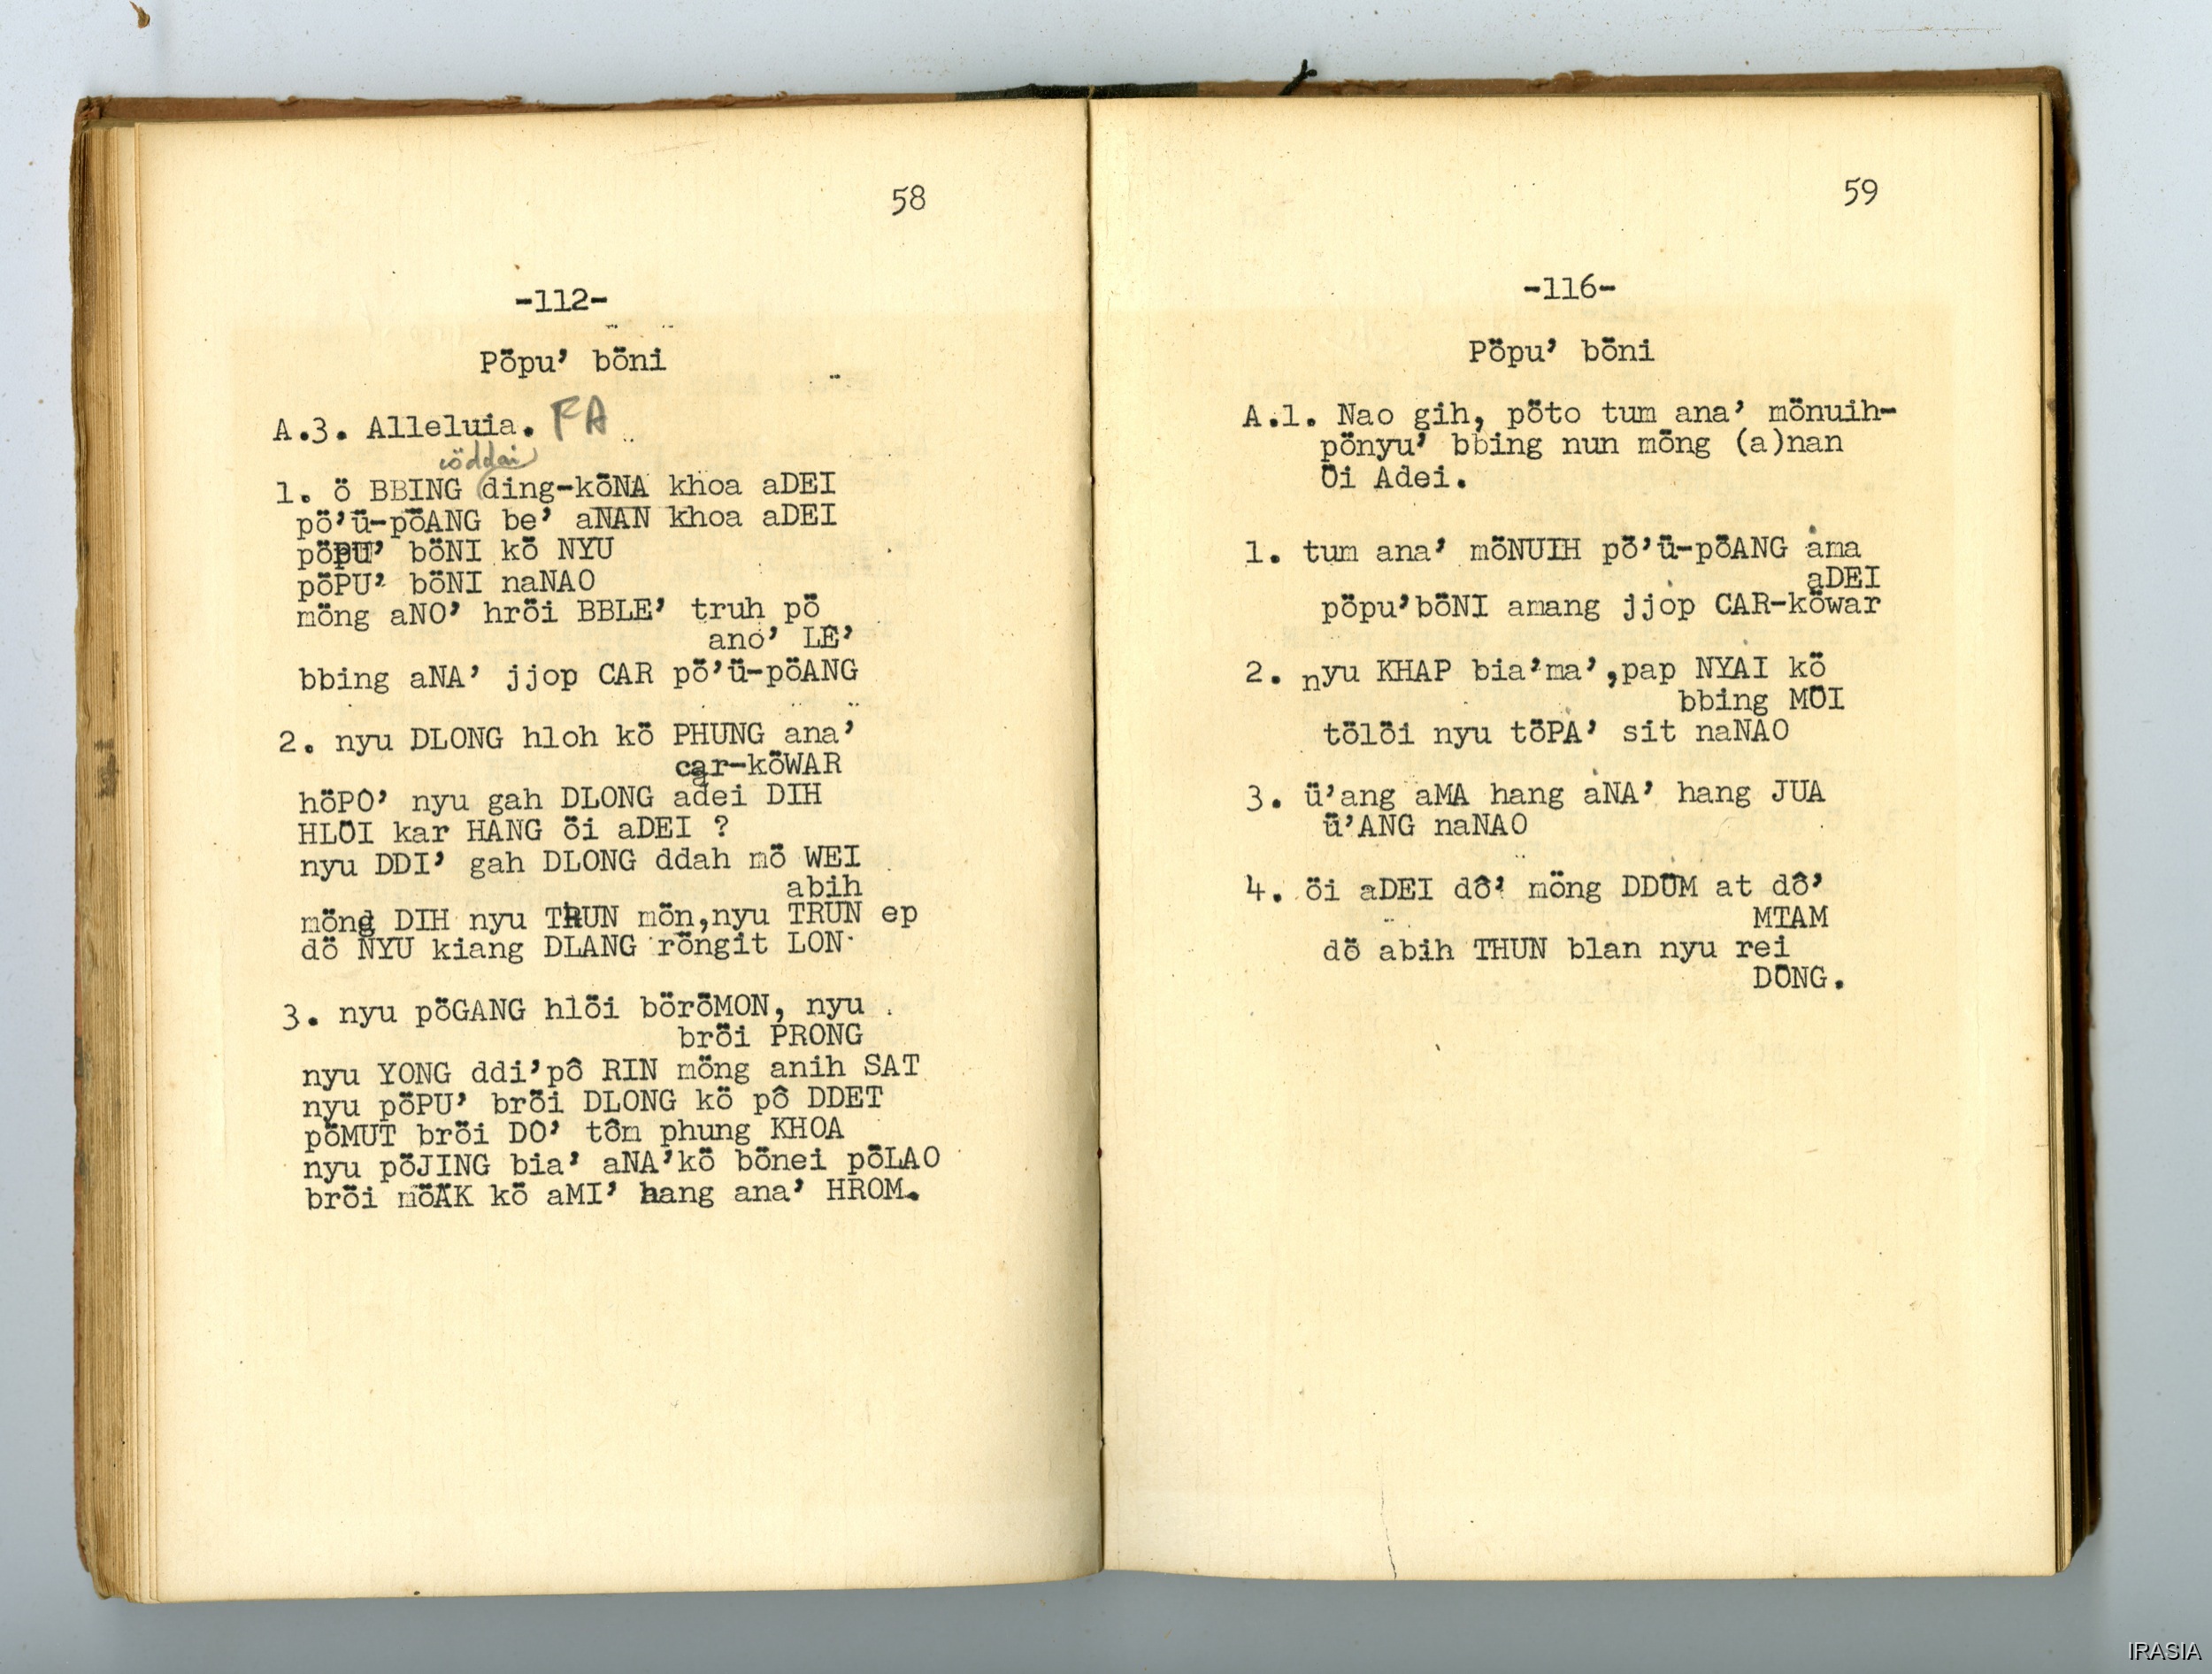 58
-112-
Pöpu’ böni
A.3. Alleluia. FA
cöddai
1. ö BBING ding-köNA khoa aDEI
pö’ü-pöANG be’ aNAN khoa aDEI
pöPU’ böNI kö NYU
pöPU’ böNI naNAO
möng aNO’ hröi BBLE’ truh pö
ano’ LÊ’
bbing aNA’ jjop CAR pö’ü-pöANG
2. nyu DLONG hloh kö PHUNG ana’
car-köWAR
höPO’ nyu gah DLONG adei DIH
HLÖI kar HANG öi aDEI ?
nyu DDI’ gah DLONG ddah mö WEI
abih
möng DIH nyu TRUN mön,nyu TRUN ep
dö NYU kiang DLANG röngit LON
3. nyu pöGANG hlöi böröMON, nyu
bröi PRONG
nyu YONG ddi’pô RIN möng anih SAT
nyu pöPU’ bröi DLONG kö pô DDET
pöMUT bröi DO’ tôm phung KHOA
nyu pöJING bia’ aNA’kö bönei pöLAO
bröi möAK kö aMI’ hang ana’ HROM.
59
-116-
Pöpu’ böni
A.1. Nao gih, pöto tum ana’ mönuih-
pönyu’ bbing nun möng (a)nan
Öi Adei.
1. tum ana’ möNUIH pö’ü-pöANG ama
aDEI
pöpu’böNI amang jjop CAR-köwar
2. nyu KHAP bia’ma’,pap NYAI kö
bbing MÖI
tölöi nyu töPA’ sit naNAO
3. ü’ang aMA hang aNA’ hang JUA
ü’ANG naNAO
4. öi aDEI dô’ möng DDÜM at dô’
MTAM
dö abih THUN blan nyu rei
DÖNG.
IRASIA